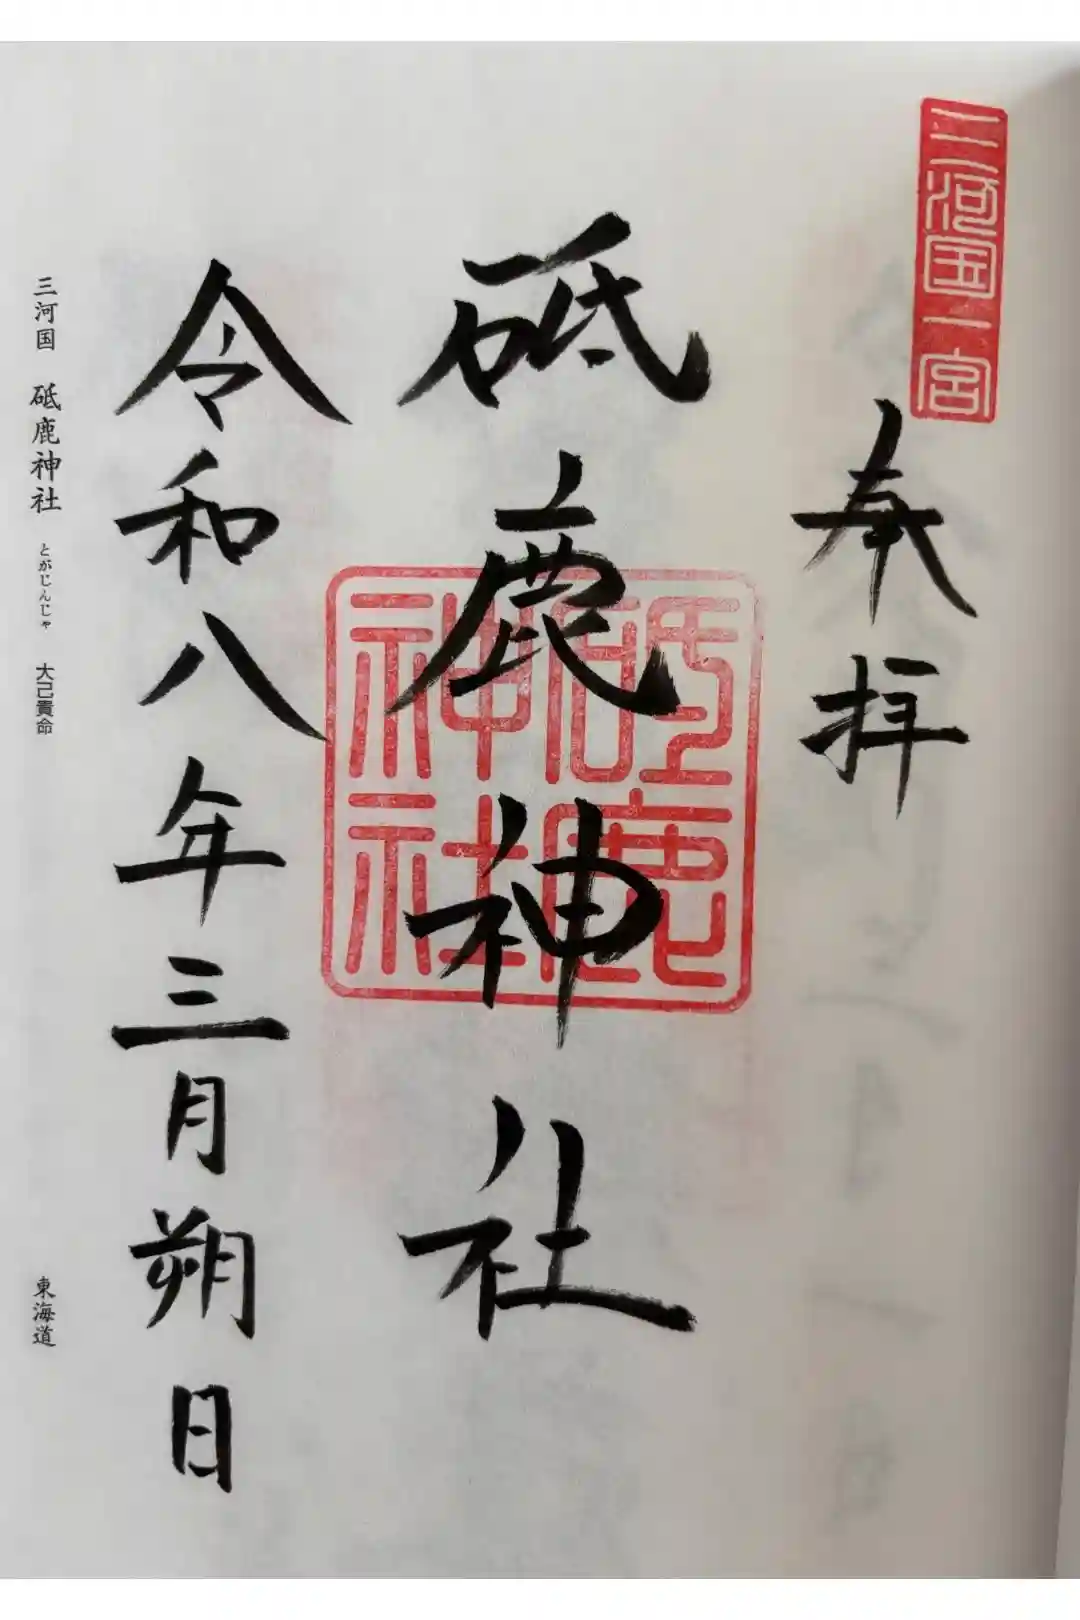 三河国一宮
奉拝
砥鹿神社
砥鹿神社
令和八年三月朔日
三河国 砥鹿神社 とがじんじゃ 大己貴命
東海道